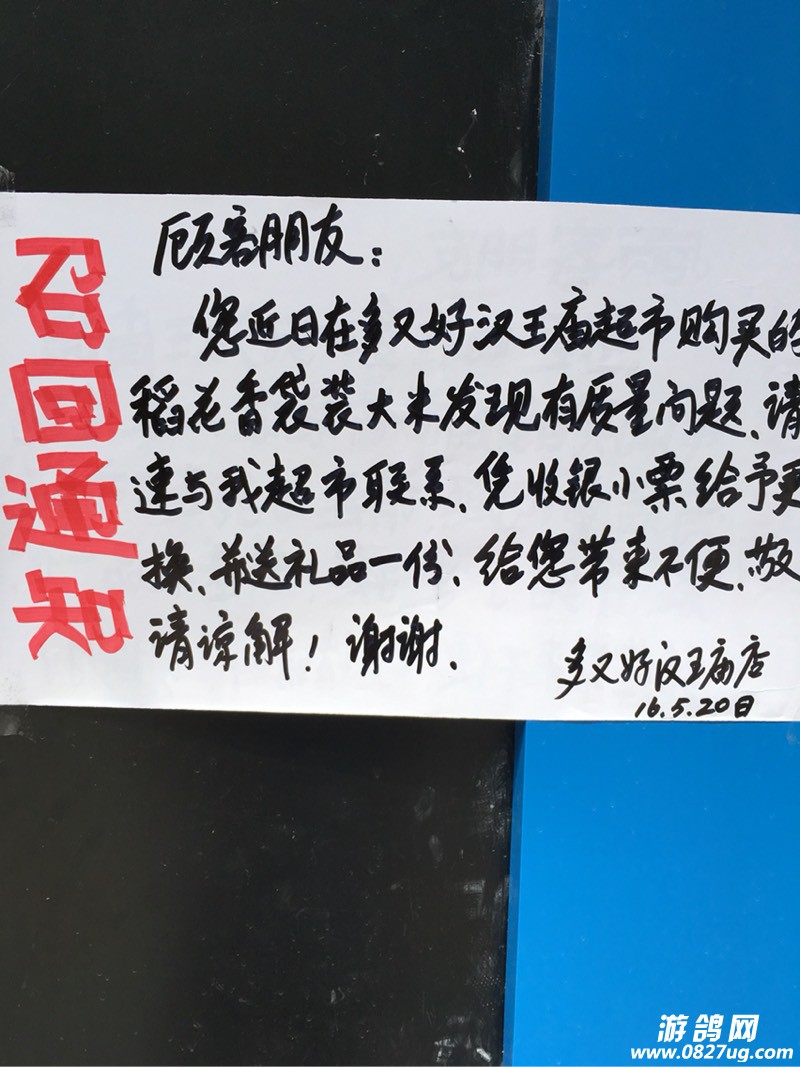 召回通知
顾客朋友：
您近日在多又好汉王庙超市购买的
稻花香袋装大米发现有质量问题、请
速与我超市联系、凭收银小票给予更
换、并送礼品一份、给您带来不便、敬
请谅解！谢谢、
多又好汉王庙店
16.5.20日
游鸽网
www.0827ug.com